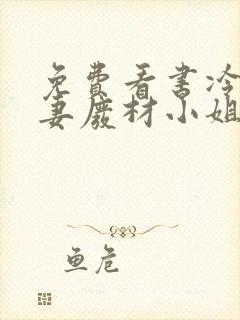 免费看书冷
妻废材小姐
鱼危